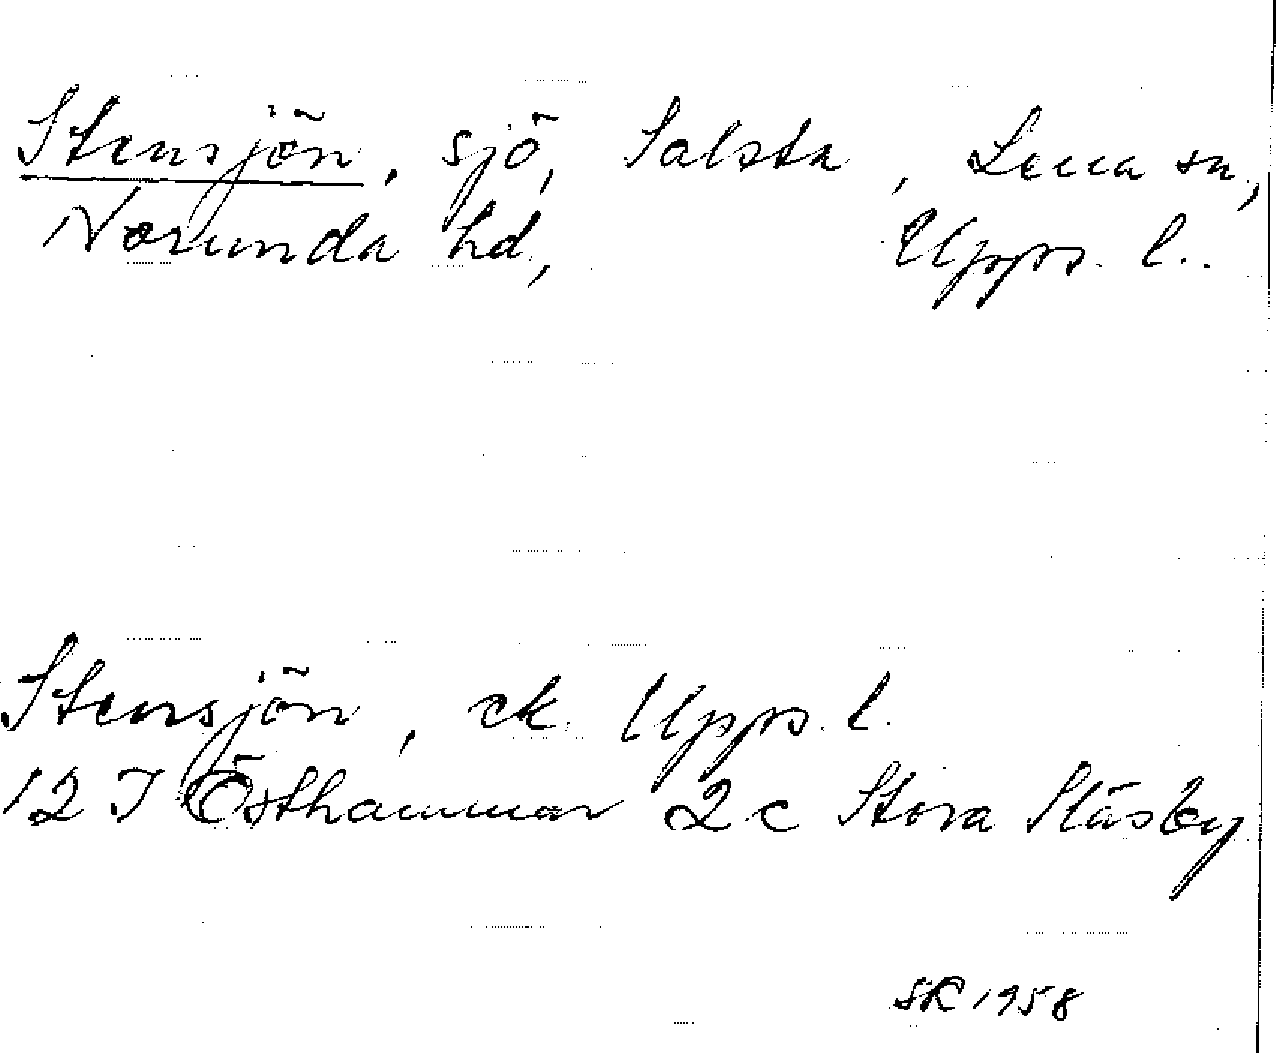 Stensjön, sjö, Salsta, Lena sn,
Norunda hd, Upps. l.
Stensjön, ek. Upps. l.
12 I Östhammar 2 c Stora Stäsby
SR 1958